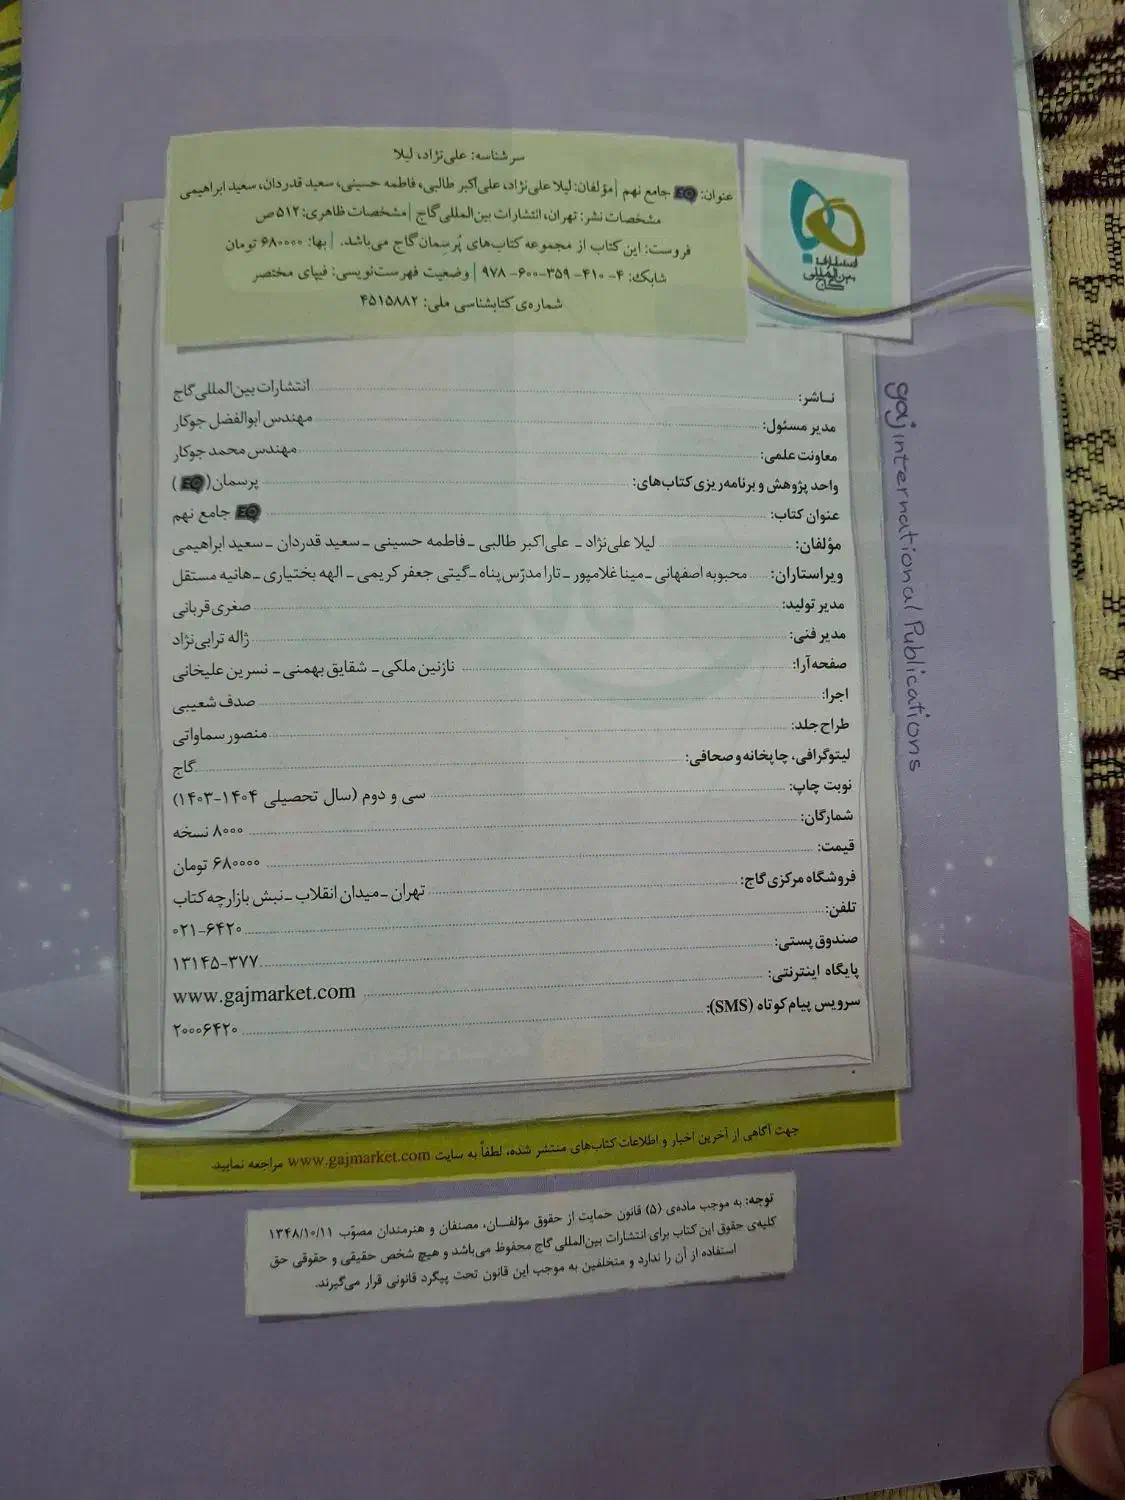 سرشناسه: علی‌نژاد، لیلا
عنوان: EQ جامع نهم | مؤلفان: لیلا علی‌نژاد، علی‌اکبر طالبی، فاطمه حسینی، سعید قدردان، سعید ابراهیمی
مشخصات نشر: تهران، انتشارات بین‌المللی گاج | مشخصات ظاهری: ۵۱۲ص
فروست: این کتاب از مجموعه کتاب‌های پُرسِمان گاج می‌باشد. | بها: ۶۸۰۰۰۰ تومان
شابک: ۴-۴۱۰-۳۵۹-۶۰۰-۹۷۸ | وضعیت فهرست‌نویسی: فیپای مختصر
شماره‌ی کتابشناسی ملی: ۴۵۱۵۸۸۲
انتشارات
بین‌المللی
گاج
gaj international Publications
ناشر: انتشارات بین‌المللی گاج
مدیر مسئول: مهندس ابوالفضل جوکار
معاونت علمی: مهندس محمد جوکار
واحد پژوهش و برنامه‌ریزی کتاب‌های: پرسمان (EQ)
عنوان کتاب: EQ جامع نهم
مؤلفان: لیلا علی‌نژاد ـ علی‌اکبر طالبی ـ فاطمه حسینی ـ سعید قدردان ـ سعید ابراهیمی
ویراستاران: محبوبه اصفهانی ـ مینا غلامپور ـ تارا مدرّس‌پناه ـ گیتی جعفر کریمی ـ الهه بختیاری ـ هانیه مستقل
مدیر تولید: صغری قربانی
مدیر فنی: ژاله ترابی‌نژاد
صفحه‌آرا: نازنین ملکی ـ شقایق بهمنی ـ نسرین علیخانی
اجرا: صدف شعیبی
طراح جلد: منصور سماواتی
لیتوگرافی، چاپخانه و صحافی: گاج
نوبت چاپ: سی و دوم (سال تحصیلی ۱۴۰۴-۱۴۰۳)
شمارگان: ۸۰۰۰ نسخه
قیمت: ۶۸۰۰۰۰ تومان
فروشگاه مرکزی گاج: تهران ـ میدان انقلاب ـ نبش بازارچه کتاب
تلفن: ۰۲۱-۶۴۲۰
صندوق پستی: ۱۳۱۴۵-۳۷۷
پایگاه اینترنتی: www.gajmarket.com
سرویس پیام کوتاه (SMS): ۲۰۰۰۶۴۲۰
جهت آگاهی از آخرین اخبار و اطلاعات کتاب‌های منتشر شده، لطفاً به سایت www.gajmarket.com مراجعه نمایید.
توجه: به موجب ماده‌ی (۵) قانون حمایت از حقوق مؤلفـان، مصنفان و هنرمندان مصوّب ۱۳۴۸/۱۰/۱۱
کلیه‌ی حقوق این کتاب برای انتشارات بین‌المللی گاج محفوظ می‌باشد و هیچ شخص حقیقی و حقوقی حق
استفاده از آن را ندارد و متخلفین به موجب این قانون تحت پیگرد قانونی قرار می‌گیرند.